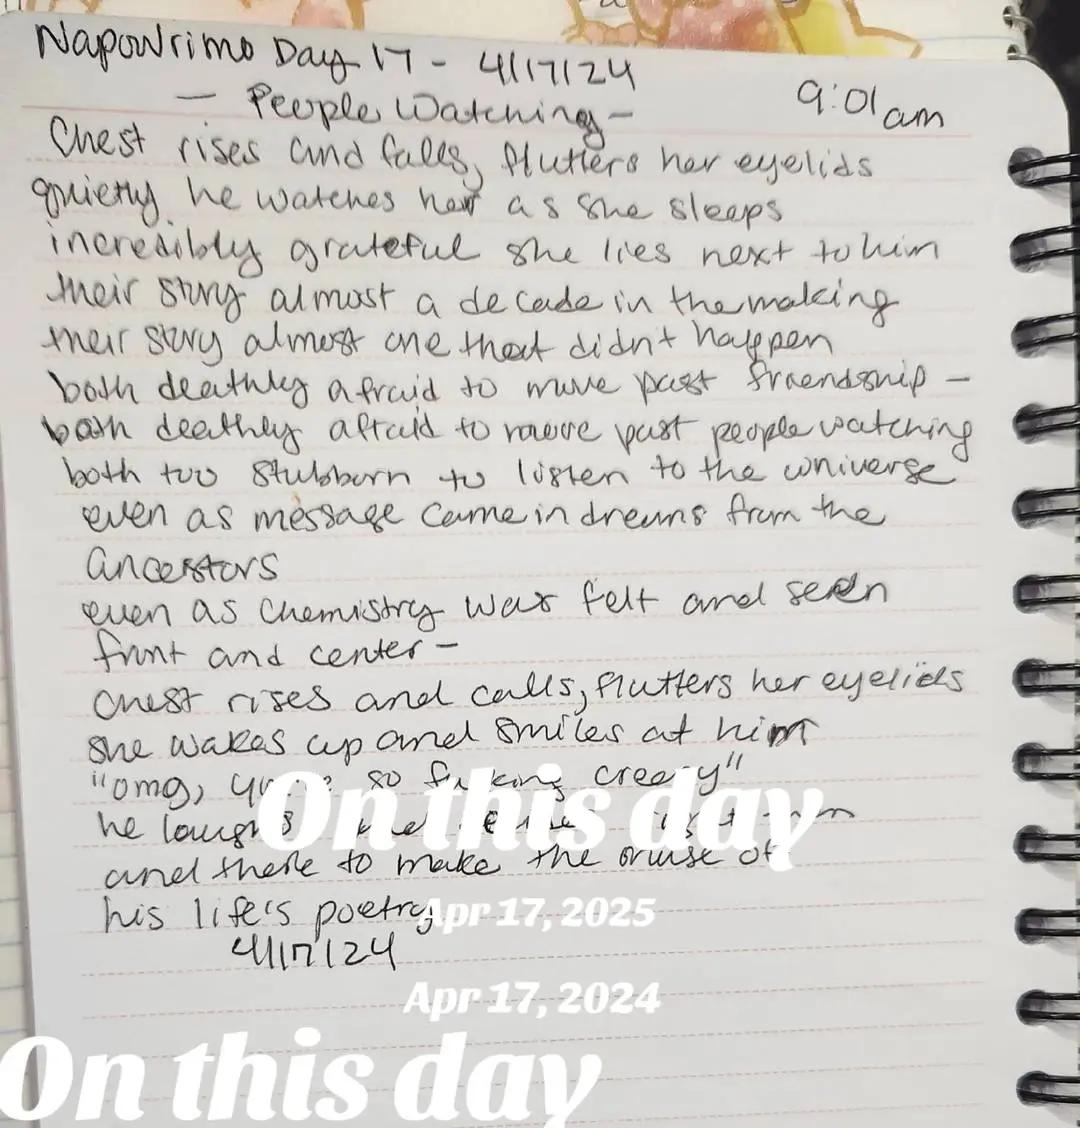 NapoWrimo Day 17 - 4/17/24
9:01am
- People Watching -
Chest rises and falls, flutters her eyelids
quietly he watches her as she sleeps
incredibly grateful she lies next to him
their story almost a decade in the making
their story almost one that didn't happen
both deathly afraid to move past friendship -
both deathly afraid to move past people watching
both too stubborn to listen to the universe
even as message came in dreams from the
ancestors
even as chemistry was felt and seen
front and center -
chest rises and calls, flutters her eyelids
she wakes up and smiles at him
"omg, so fucking creepy"
he laughs
and there to make the muse of
his life's poetry
4/17/24
On this day
Apr 17, 2025
Apr 17, 2024
On this day